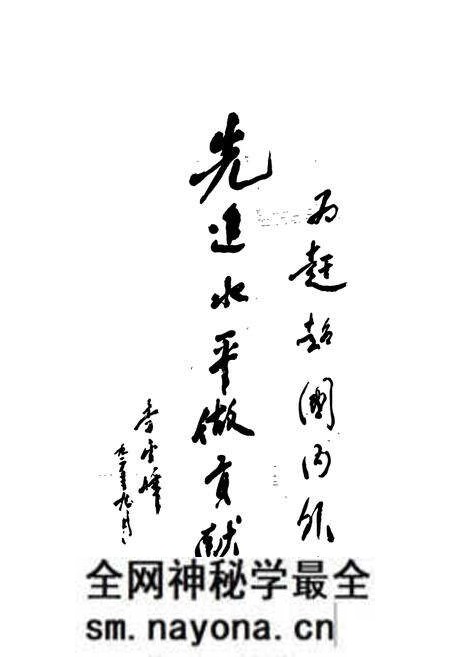 为趕超國内外
先進水平做贡献
九二年九月
全网神秘学最全
sm.nayona.cn